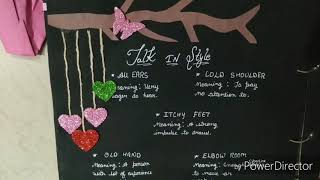 Talk IN Style
* All EARS
Meaning: Very
eager to hear.
* COLD SHOULDER
Meaning: To pay
no attention to.
* ITCHY FEET
Meaning: A strong
impulse to travel.
* OLD HAND
Meaning: A person
with lot of experience
* ELBOW ROOM
Meaning: Enough
to move or
PowerDirector